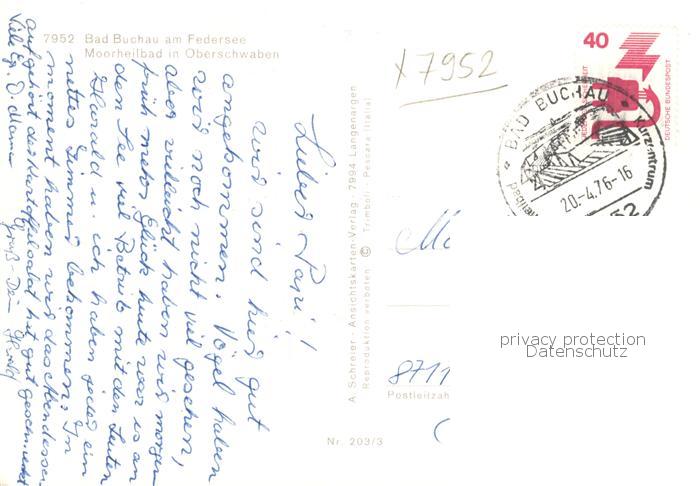 7952 Bad Buchau am Federsee
Moorheilbad in Oberschwaben
Lieber Papi!
wir sind hier gut
angekommen. Vögel haben
wir noch nicht viel gesehen,
aber vielleicht haben wir morgen
früh mehr Glück heute war es an
den See viel Betrieb mit den Leuten
u. ich haben jedes ein
nettes Zimmer bekommen. In
moment haben wir das Abendessen
aufgehört der Kartoffelsalat hat gut geschmeckt
Viele Gr. D. Mama
Gruß - Dein
A. Schreier · Ansichtskarten-Verlag · 7994 Langenargen
Reproduktion verboten © Trimboli - Pescara (Italia)
Nr. 203/3
x 7952
40
DEUTSCHE BUNDESPOST
BAD BUCHAU
Kurzentrum
20.-4.76-16
8711
Postleitzah
privacy protection
Datenschutz